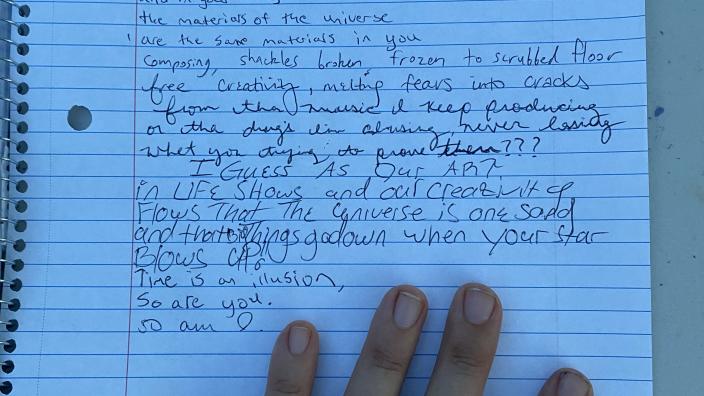 the materials of the universe
are the same materials in you
composing, shackles broken, frozen to scrubbed floor
free creativity, melting fears into cracks
from tha music I keep producing
or tha drugs i'm abusing, never lossing
what you trying to prove them???
I GUESS AS OUR ART
in LIFE SHOWS and our creativity
FLOWS THAT THE universe is one
and that Big Things go down when your star
Blows UP.
Time is an illusion,
So are you.
so am I.